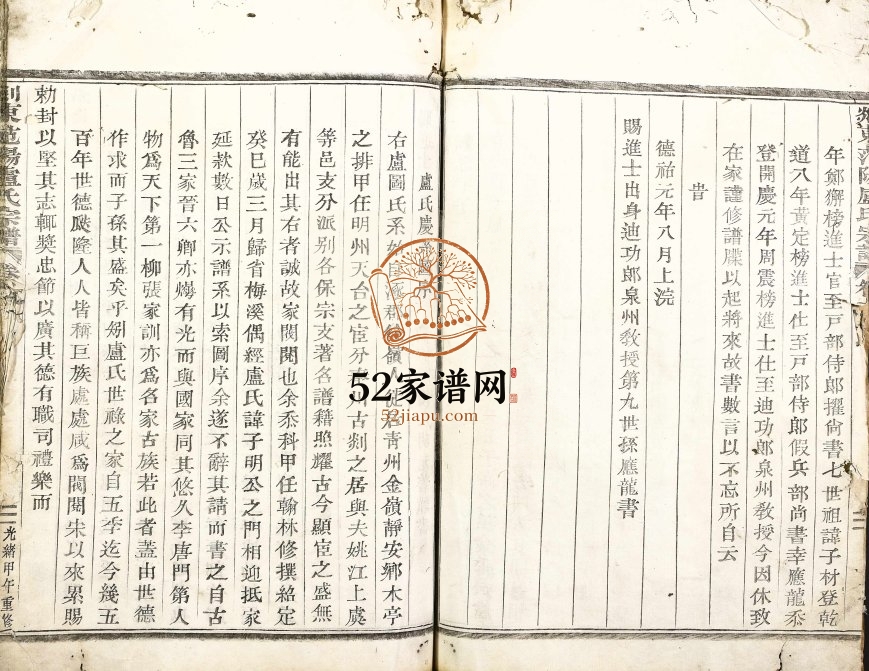 年鄭獬榜進士官至戸部侍郎擢尙書七世祖諱子材登乾
道八年黄定榜進士仕至戸部侍郎假兵部尚書幸應龍忝
登開慶元年周震榜進士仕至迪功郎泉州教授今因休致
在家謹修譜牒以起將來故書數言以不忘所自云
旹
德祐元年八月上浣
賜進士出身迪功郎泉州教授第九世孫應龍書
盧氏慶
右盧圖氏系始 青州金嶺靜安鄉木亭
之排甲任明州天台之宦分 古剡之居與夫姚江上虞
等邑支分派别各保宗支著各譜籍照耀古今顯宦之盛無
有能出其右者誠故家閥閱也余忝科甲任翰林修撰紹定
癸巳歲三月歸省梅溪偶經盧氏諱子明公之門相迎抵家
延欵數日公示譜系以索圖序余遂不辭其請而書之自古
魯三家晉六卿亦煒有光而與國家同其悠久李唐門第人
物爲天下第一柳張家訓亦爲名家古族若此者蓋由世德
作求而子孫其盛矣乎矧盧氏世祿之家自五季迄今幾五
百年世德陞隆人人皆稱巨族處處咸爲閥閱宋以來累賜
勅封以堅其志輒奬忠節以廣其德有職司禮樂而
剡東范陽盧氏宗譜
光緒甲午重修
52家谱网
52jiapu.com